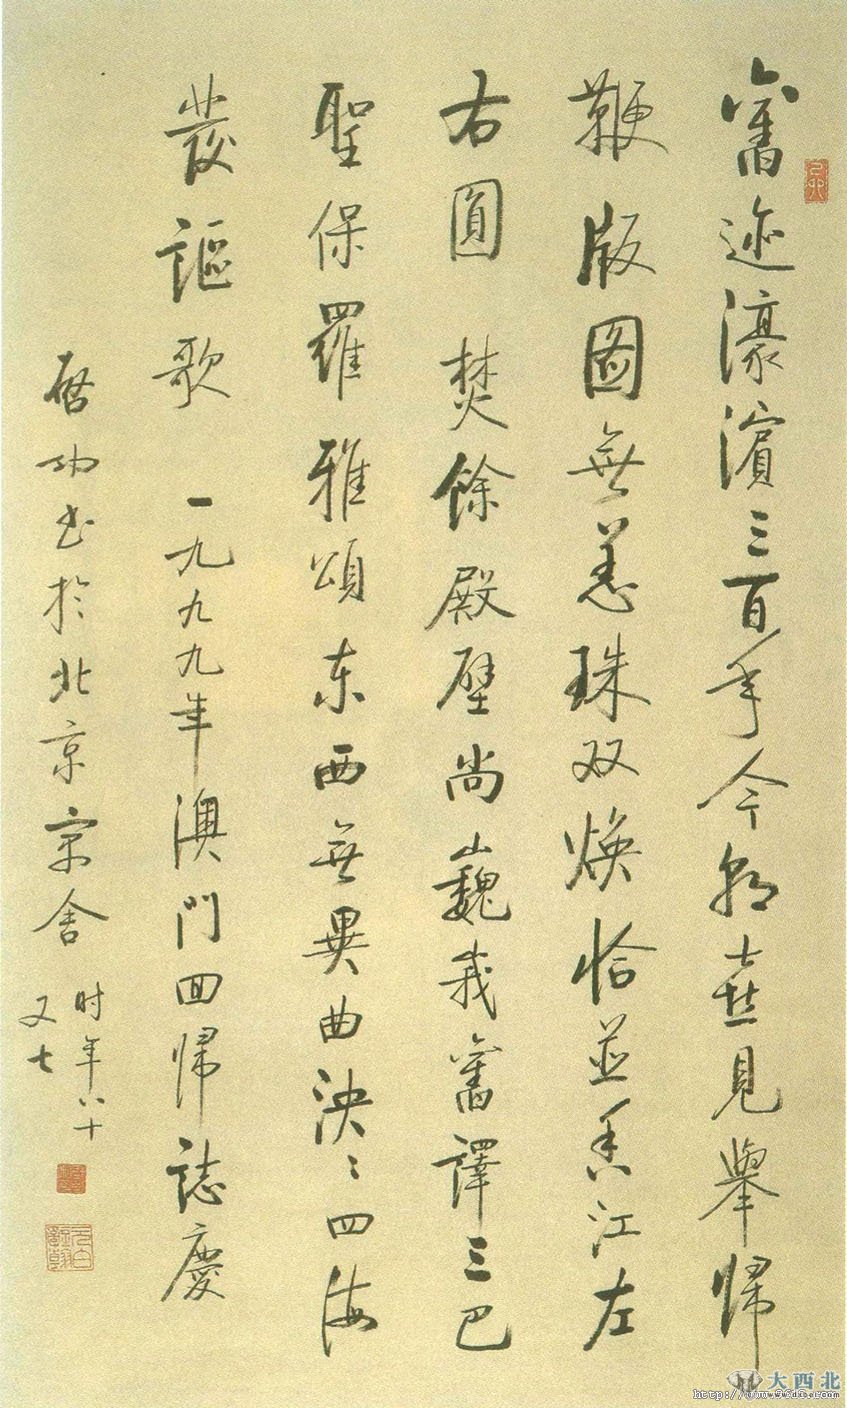 舊迹濠濱三百年今朝喜見舉歸
鞭版圖無恙珠双焕恰並香江左
右圓 焚餘殿壁尚巍峩舊譯三巴
聖保羅雅頌东西無異曲泱〻四海
發謳歌 一九九九年澳門回歸誌慶
啓功书於北京寓舍 时年八十
又七
大西北